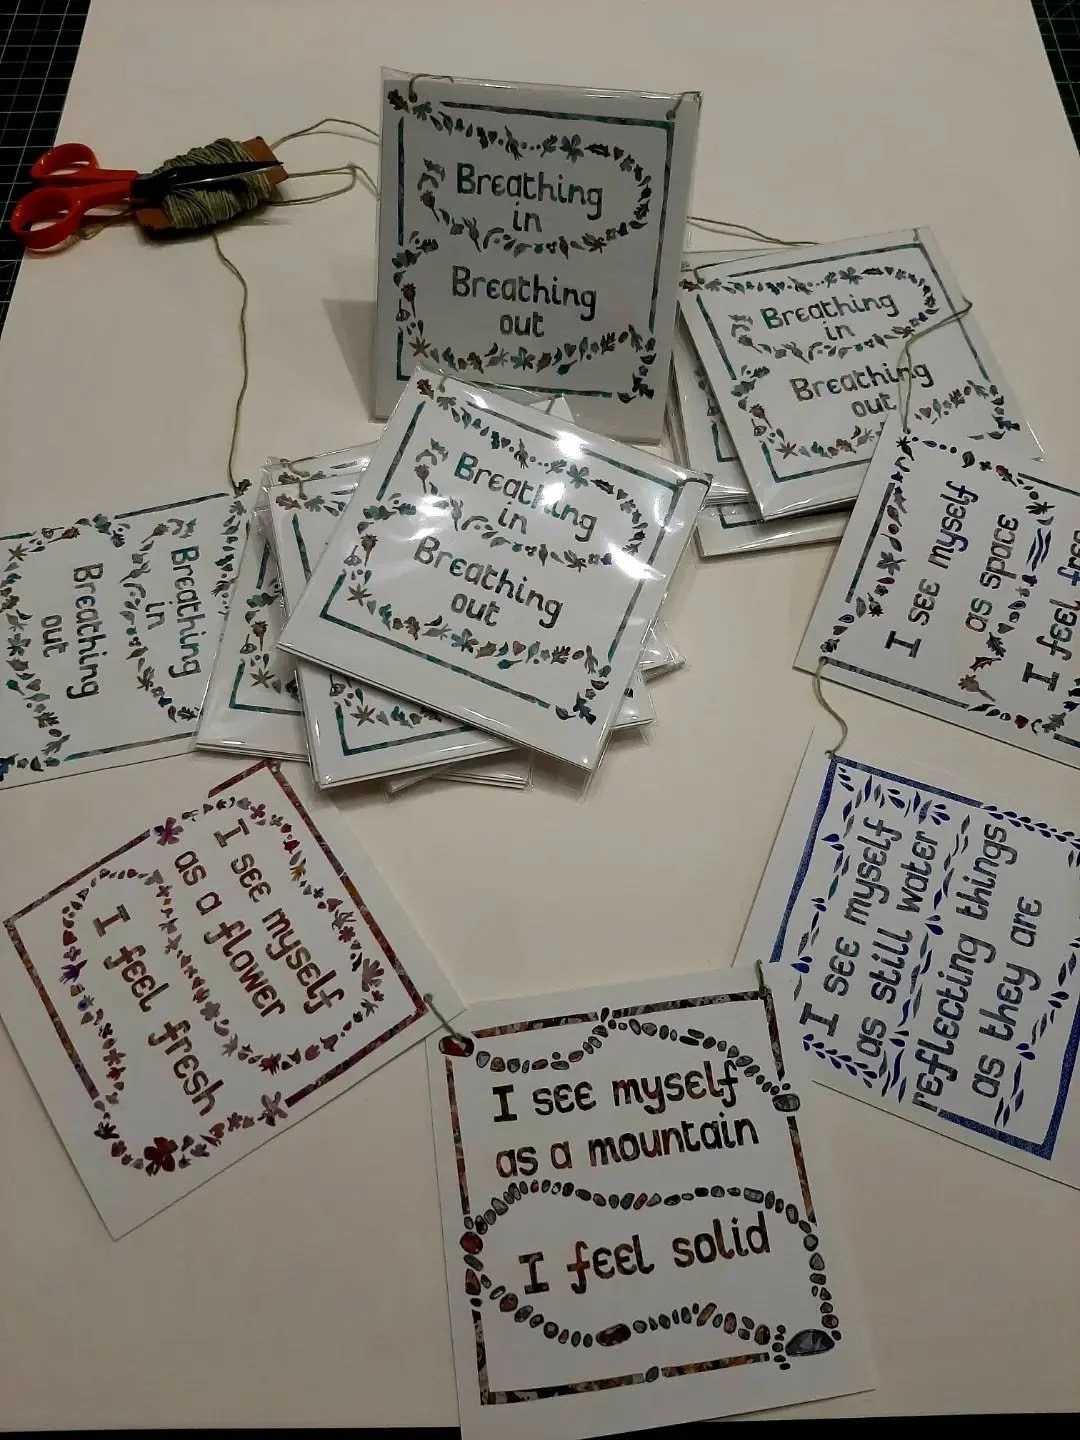 Breathing
in
Breathing
out
Breathing
in
Breathing
out
Breathing
in
Breathing
out
Breathing
in
Breathing
out
I see myself
as space
I feel free
I see myself
as a flower
I feel fresh
I see myself
as still water
reflecting things
as they are
I see myself
as a mountain
I feel solid